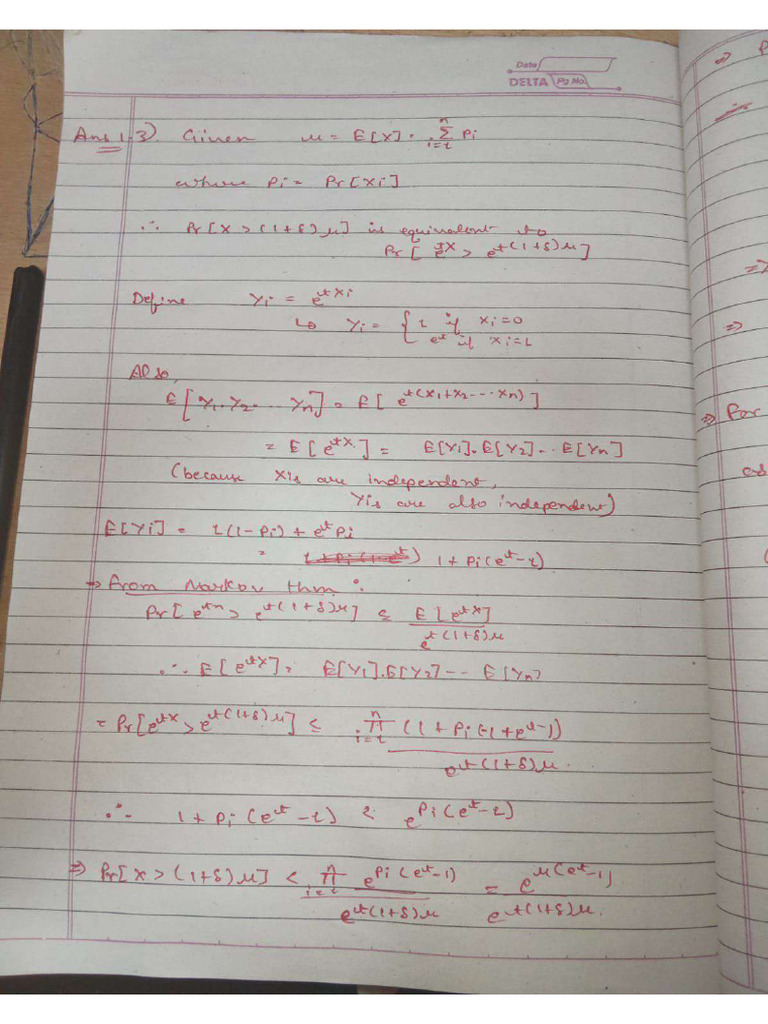 Date
DELTA Pg No.
Ans 1-3) Given μ = E[X] = Σ_{i=1}^{n} Pi
where Pi = Pr[Xi]
∴ Pr[X > (1+δ)μ] is equivalent to
Pr[e^{tX} > e^{t(1+δ)μ}]
Define Yi = e^{tXi}
↳ Yi = { 1 if Xi=0
e^t if Xi=1
Also,
E[Y1.Y2... Yn] = E[e^{t(X1+X2...Xn)}]
= E[e^{tX}] = E[Y1].E[Y2]... E[Yn]
(because Xis are independent,
Yis are also independent)
E[Yi] = 1(1-Pi) + e^t Pi
= 1+Pi(e^t-1)
⇒ From Markov thm:
Pr[e^{tn} > e^{t(1+δ)μ}] ≤ E[e^{tX}] / e^{t(1+δ)μ}
∴ E[e^{tX}] = E[Y1].E[Y2]... E[Yn]
= Pr[e^{tX} > e^{t(1+δ)μ}] ≤ Π_{i=1}^{n} (1+Pi(-1+e^t-1) / e^{t(1+δ)μ}
∴ 1+Pi(e^t-1) < e^{Pi(e^t-1)}
⇒ Pr[X > (1+δ)μ] < Π_{i=1}^{n} e^{Pi(e^t-1)} / e^{t(1+δ)μ} = e^{μ(e^t-1)} / e^{t(1+δ)μ}
⇒
⇒
⇒
⇒ For